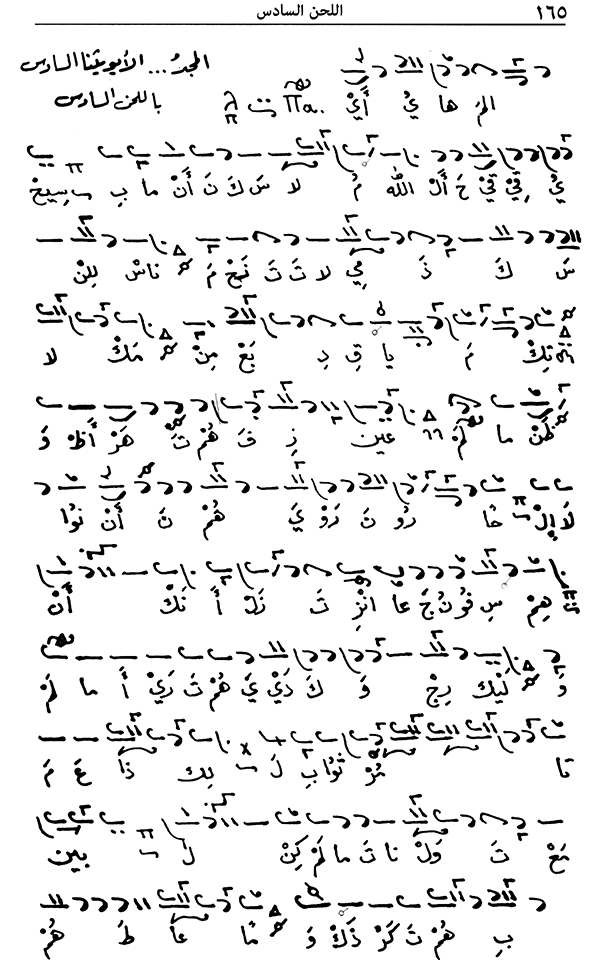 ١٦٥ اللحن السادس
المجدُ... الأيوثينا السادس
باللحن السادس
الم ها يْ أَيْ
يْ قِيْ قِيْ حَ أَلْ الله مُ لا سَ كَ نَ أَنْ ما بِ سِيحْ
سَ كَ ذَ مِي لا تَ تَ نَحْ مَ ناسْ لِلنْ
تِكْ مَ يا قِ دِ بَعْ مِنْ مَكْ لا
ظَنْ ما لَمْ عين زِ فَ هُمْ تَ هَرْ أَظْ وَ
لَإِلْ حا رُو تَ رَوْ يَ هُمْ تَ أَنْ نُوا
هِمْ سِ فُو نُ جَ عا انْزِ تَ زَلْ أَ نَكْ أَنْ
وَ لَيْكَ رِجْ وَ كَ دَيْ يَ هُمْ تَ رَيْ أَ ما لَمْ
قا تُرْ ثُوابِ لَ لِكَ ذا عَ مَ
مَعْ تَ وَلْ نا تَ ما لَمْ كِنْ لَ بين
بِ هُمْ تَ كَرْ ذَكْ وَ ما عا طَ هُمْ